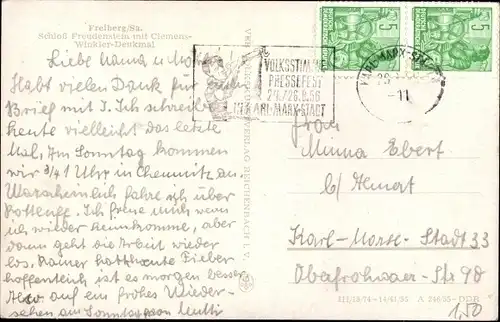 Freiberg/Sa.
Schloß Freudenstein mit Clemens-
Winkler-Denkmal
Liebe Mama u
Habt vielen Dank für
Brief mit I. Ich schreibe
heute vielleicht das letzte
Mal. Am Sonntag kommen
wir 3/4 1 Uhr in Chemnitz an.
Warscheinlich fahre ich über
Ich freue mich wenn
ich wieder heimkomme, aber
dann geht die Arbeit wieder
los. Rainer hatte heute Fieber
hoffentlich ist es morgen besser
Also auf ein frohes Wieder-
sehen am Sonntag von Mutti
VOLKSSTIMME
PRESSEFEST
IN KARL-MARX-STADT
KARL-MARX-STADT
-11
5
5
Frau
Minna Ebert
b/
Karl-Marx-Stadt 33
Str 98
III/18/74 A DDR
1,50